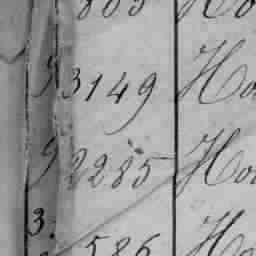 805 Ho
9 3149 Ho
9 2285 Ho
3.
586 Ho